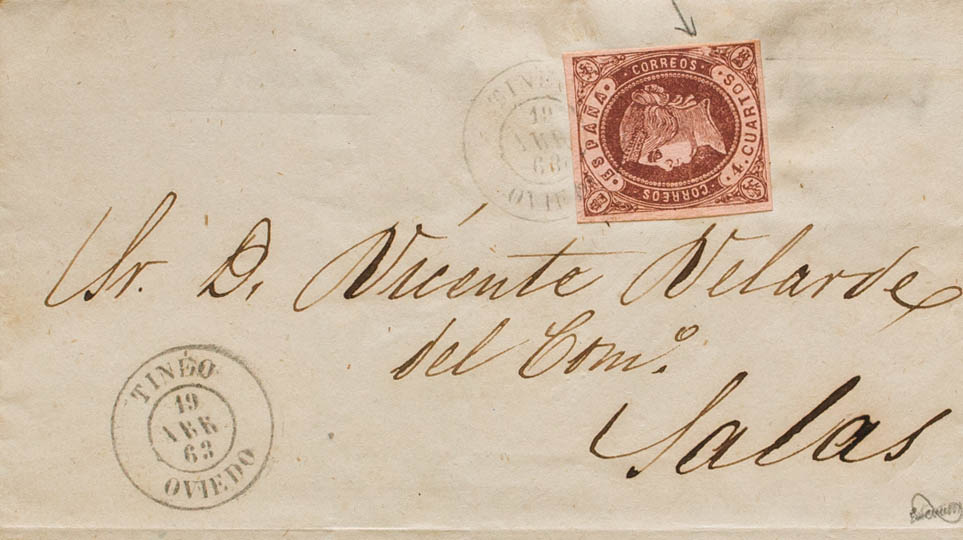 CORREOS
ESPAÑA
4. CUARTOS
CORREOS
19
OVIE
Sr. D. Vicente Velarde
del Com.º
Salas
TINÉO
19
ABR
63
OVIEDO